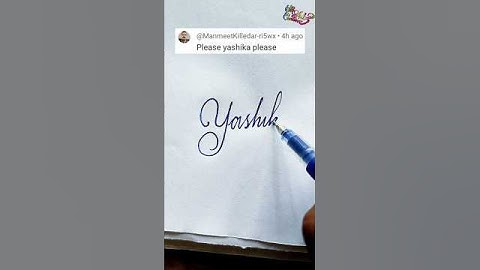 @ManmeetKilledar-ri5wx • 4h ago
Please yashika please
Yashik